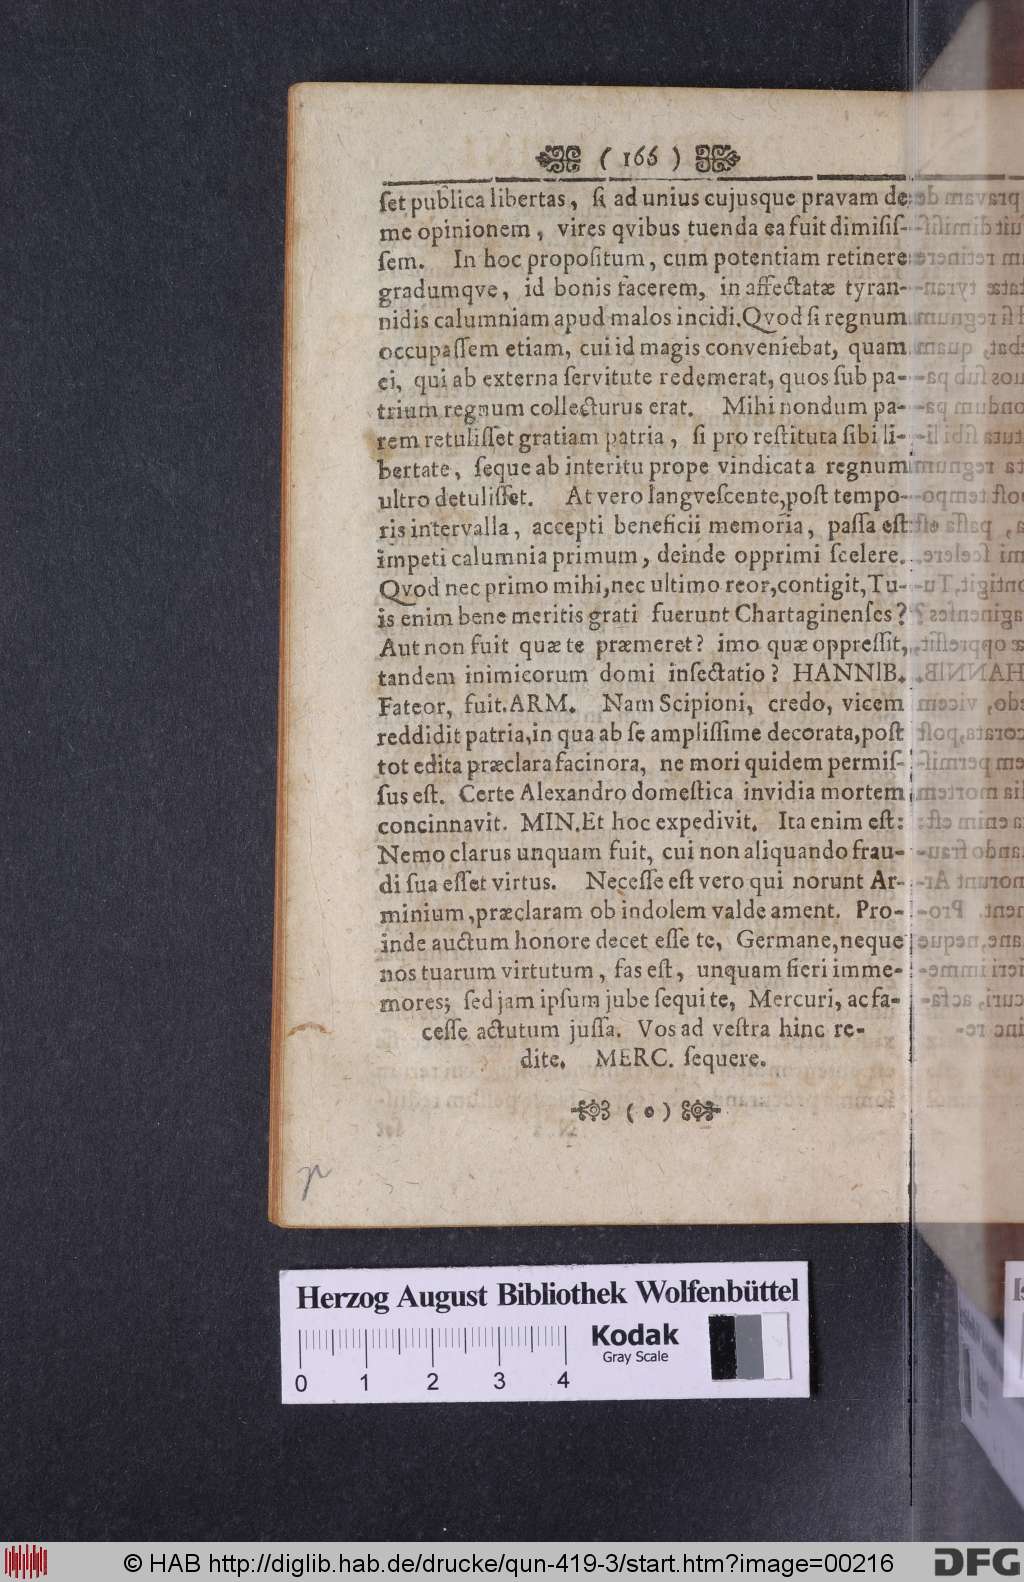 ( 166 )
ſet publica libertas, ſi ad unius cujusque pravam de
me opinionem, vires qvibus tuenda ea fuit dimiſiſ-
ſem. In hoc propoſitum, cum potentiam retinere
gradumqve, id bonis facerem, in affectatæ tyran-
nidis calumniam apud malos incidi. Qvod ſi regnum
occupaſſem etiam, cui id magis conveniebat, quam
ei, qui ab externa ſervitute redemerat, quos ſub pa-
trium regnum collecturus erat. Mihi nondum pa-
rem retuliſſet gratiam patria, ſi pro reſtituta ſibi li-
bertate, ſeque ab interitu prope vindicata regnum
ultro detuliſſet. At vero langveſcente, poſt tempo-
ris intervalla, accepti beneficii memoria, paſſa eſt
impeti calumnia primum, deinde opprimi ſcelere.
Qvod nec primo mihi, nec ultimo reor, contigit, Tu-
is enim bene meritis grati fuerunt Chartaginenſes?
Aut non fuit quæ te præmeret? imo quæ oppreſſit,
tandem inimicorum domi inſectatio? HANNIB.
Fateor, fuit. ARM. Nam Scipioni, credo, vicem
reddidit patria, in qua ab ſe ampliſſime decorata, poſt
tot edita præclara facinora, ne mori quidem permiſ-
ſus eſt. Certe Alexandro domeſtica invidia mortem
concinnavit. MIN. Et hoc expedivit. Ita enim eſt:
Nemo clarus unquam fuit, cui non aliquando frau-
di ſua eſſet virtus. Neceſſe eſt vero qui norunt Ar-
minium, præclaram ob indolem valde ament. Pro-
inde auctum honore decet eſſe te, Germane, neque
nos tuarum virtutum, fas eſt, unquam fieri imme-
mores; ſed jam ipſum jube ſequi te, Mercuri, ac fa-
ceſſe actutum juſſa. Vos ad veſtra hinc re-
dite. MERC. ſequere.
( o )
Herzog August Bibliothek Wolfenbüttel
Kodak
Gray Scale
0 1 2 3 4
© HAB http://diglib.hab.de/drucke/qun-419-3/start.htm?image=00216
DFG